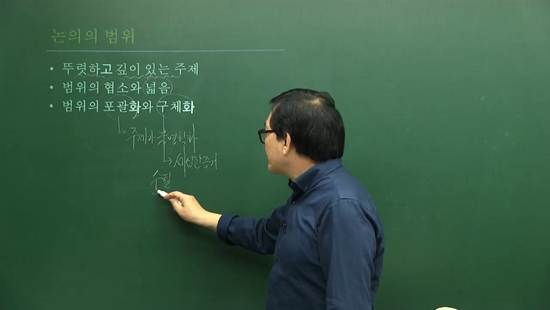 논의의 범위
• 뚜렷하고 깊이 있는 주제
• 범위의 협소와 넓음
• 범위의 포괄화와 구체화
주제가